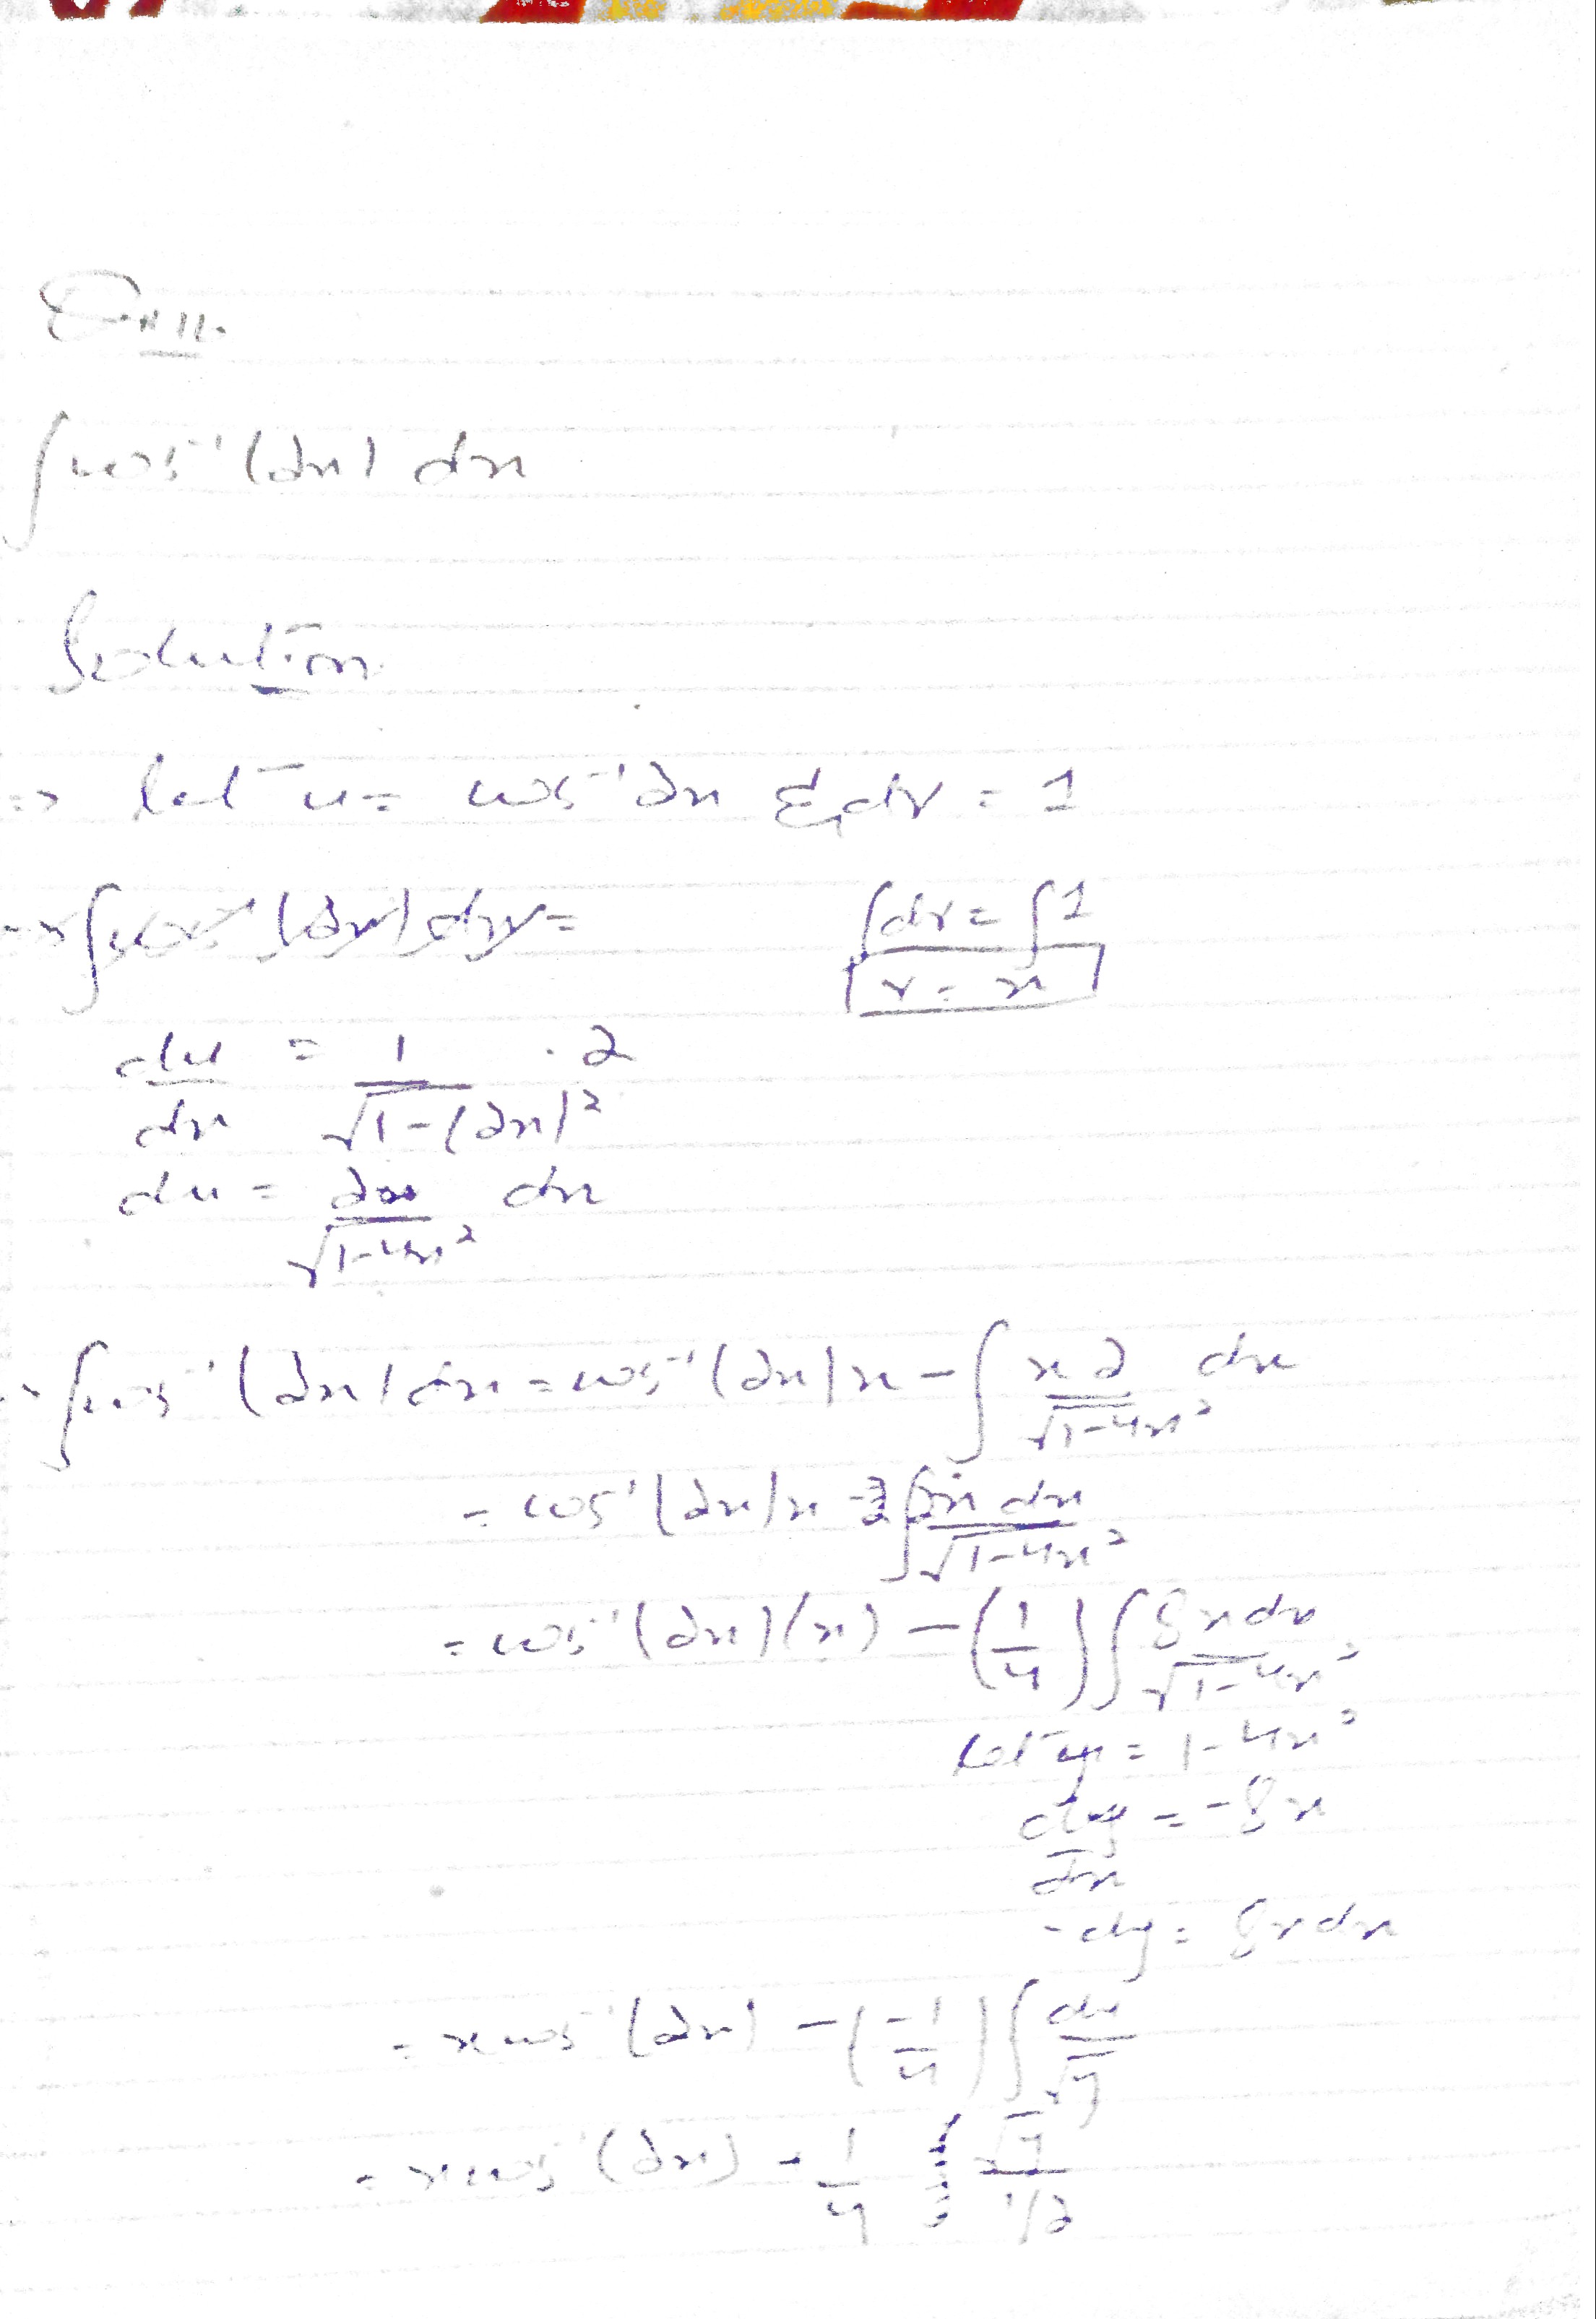 Q#11.
∫cos⁻¹(2x) dx
Solution
=> let u = cos⁻¹2x & dv = 1
∫cos⁻¹(2x)dx =
∫dv = ∫1
v = x
du/dx = 1/√(1-(2x)²) . 2
du = 2/√(1-4x²) dx
∫cos⁻¹(2x)dx = cos⁻¹(2x)x - ∫ x2/√(1-4x²) dx
= cos⁻¹(2x)x - ∫ x dx/√(1-4x²)
= cos⁻¹(2x)(x) - (1/4)∫ 8xdx/√(1-4x²)
let y = 1-4x²
dy/dx = -8x
-dy = 8xdx
= xcos⁻¹(2x) - (-1/4)∫ dy/√y
= xcos⁻¹(2x) - 1/4 √y/(1/2)